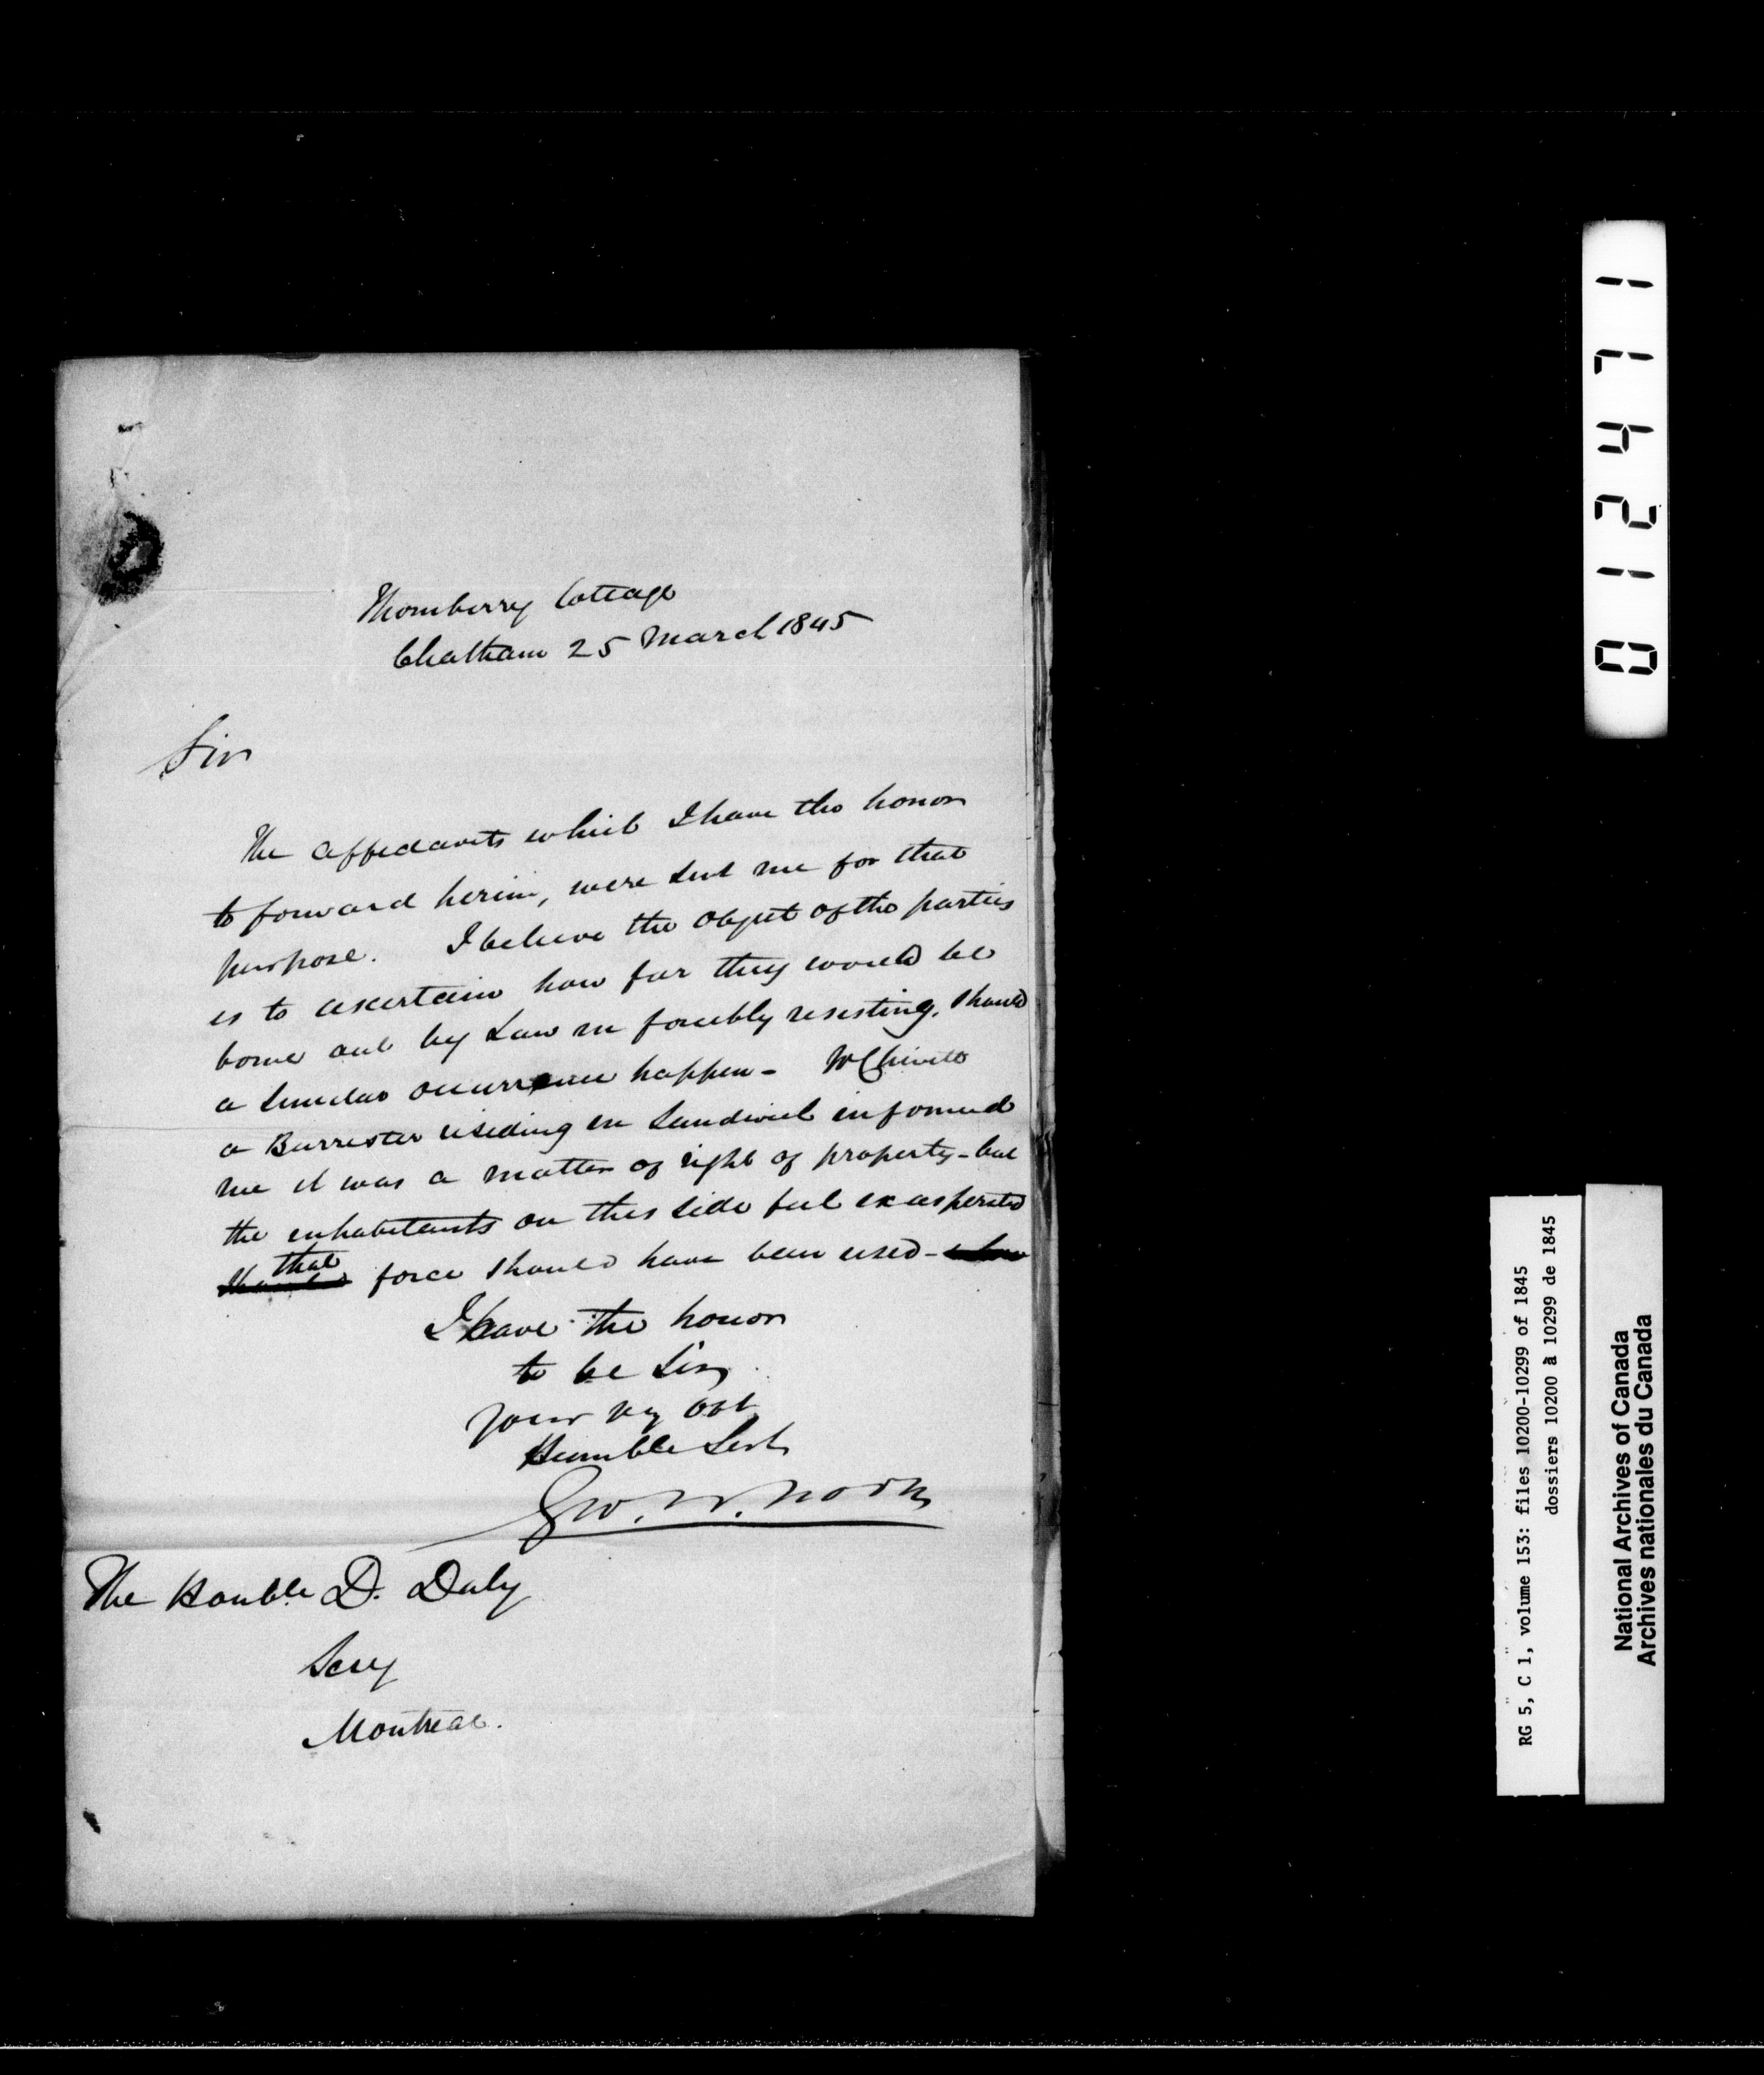 Thornberry Cottage
Chatham 25 March 1845
Sir
The affidavits which I have the honor
to forward herein, were sent me for that
purpose. I believe the object of the parties
is to ascertain how far they would be
borne out by Law in forcibly resisting, should
a similar occurrence happen -
a Barrister residing in Sandwich informed
me it was a matter of right of property - but
the inhabitants on this side feel exasperated
that
force should have been used -
I have the honor
to be Sir
your vy obt
Humble Servt
Geo. W.
The Honble. D. Daly
Secy
Montreal.
012471
RG 5, C 1, volume 153: files 10200-10299 of 1845
dossiers 10200 à 10299 de 1845
National Archives of Canada
Archives nationales du Canada